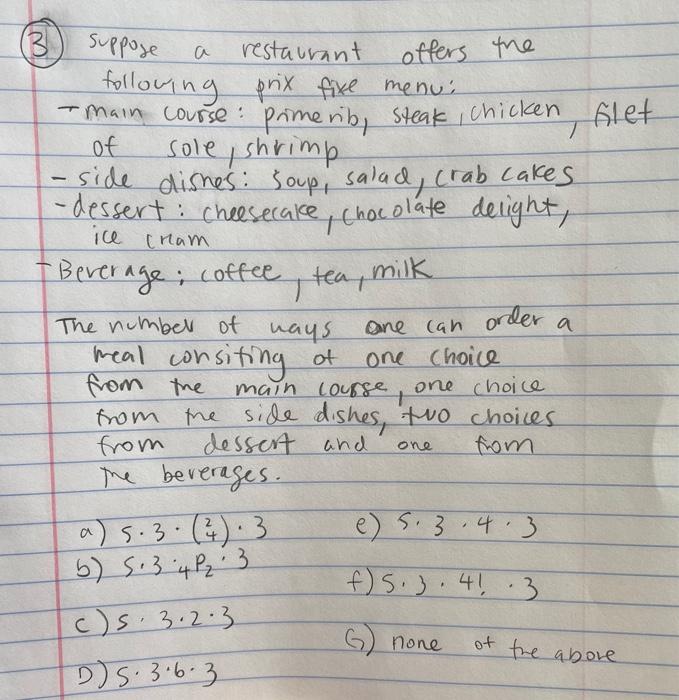 3 suppose a restaurant offers the
following prix fixe menu:
- main course: prime rib, steak, chicken, filet
of sole, shrimp
- side dishes: soup, salad, crab cakes
- dessert: cheesecake, chocolate delight,
ice cream
- Beverage: coffee, tea, milk
The number of ways one can order a
meal consiting of one choice
from the main course, one choice
from the side dishes, two choices
from dessert and one from
the beverages.
a) 5·3·(2/4)·3
e) 5·3·4·3
b) 5·3·₄P₂·3
f) 5·3·4!·3
c) 5·3·2·3
G) none of the above
D) 5·3·6·3